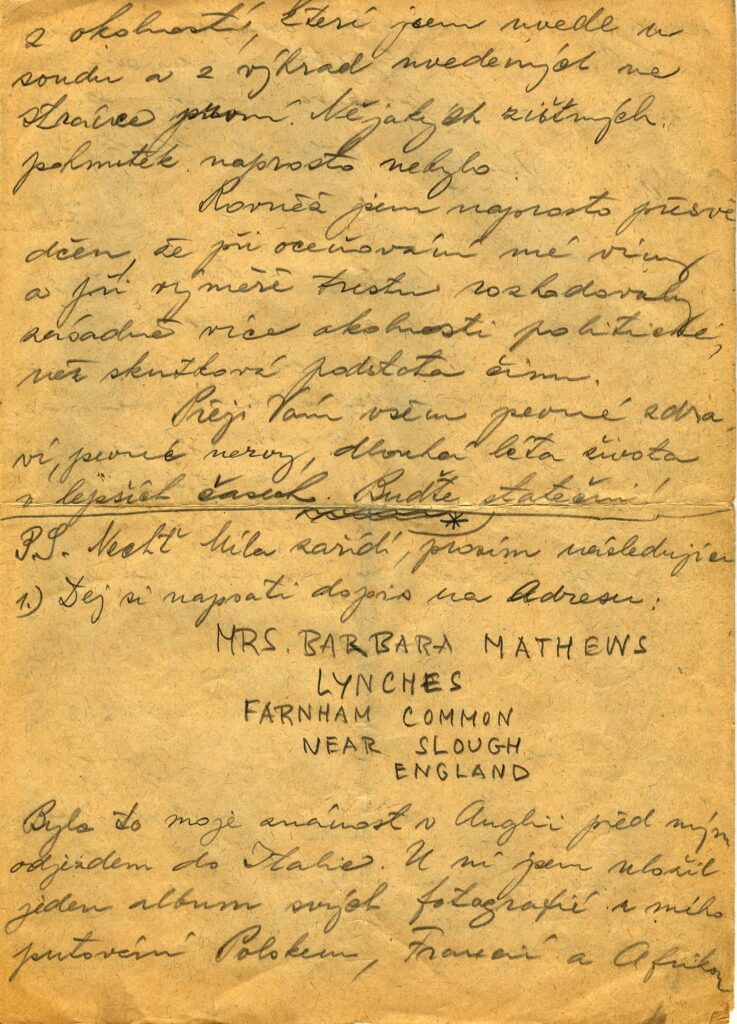 z okolností, kterí jsem uvedl u
soudu a z výhrad uvedených na
stránce první. Nějakých zištných
pohnutek naprosto nebylo.
Rovněž jsem naprosto přesvě
dčen, že při oceňování mé viny
a při výměře trestu rozhodovaly
zásadně více okolnosti politické,
než skutková podstata činu.
Přeji Vám všem pevné zdra
ví, pevné nervy, dlouhá léta života
v lepších časech. Buďte stateční!
*
P.S. Nechť Míla zařídí, prosím následující
1.) Dej si napsati dopis na Adresu:
MRS. BARBARA MATHEWS
LYNCHES
FARNHAM COMMON
NEAR SLOUGH
ENGLAND
Byla to moje známost v Anglii před mým
odjezdem do Italie. U ní jsem uložil
jeden album svých fotografií z mého
putování Polskem, Francií a Afrikou